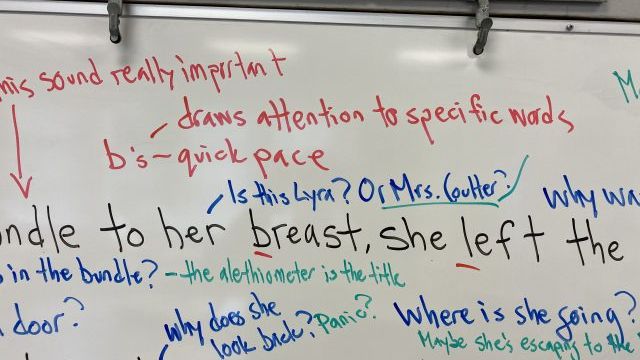 sound really important
draws attention to specific words
b's - quick pace
Is this Lyra? Or Mrs. Coulter?
Why
to her breast, she left the
in the bundle? - the alethiometer is the title
door?
why does she look back? Panic?
Where is she going?
Maybe she's escaping to the